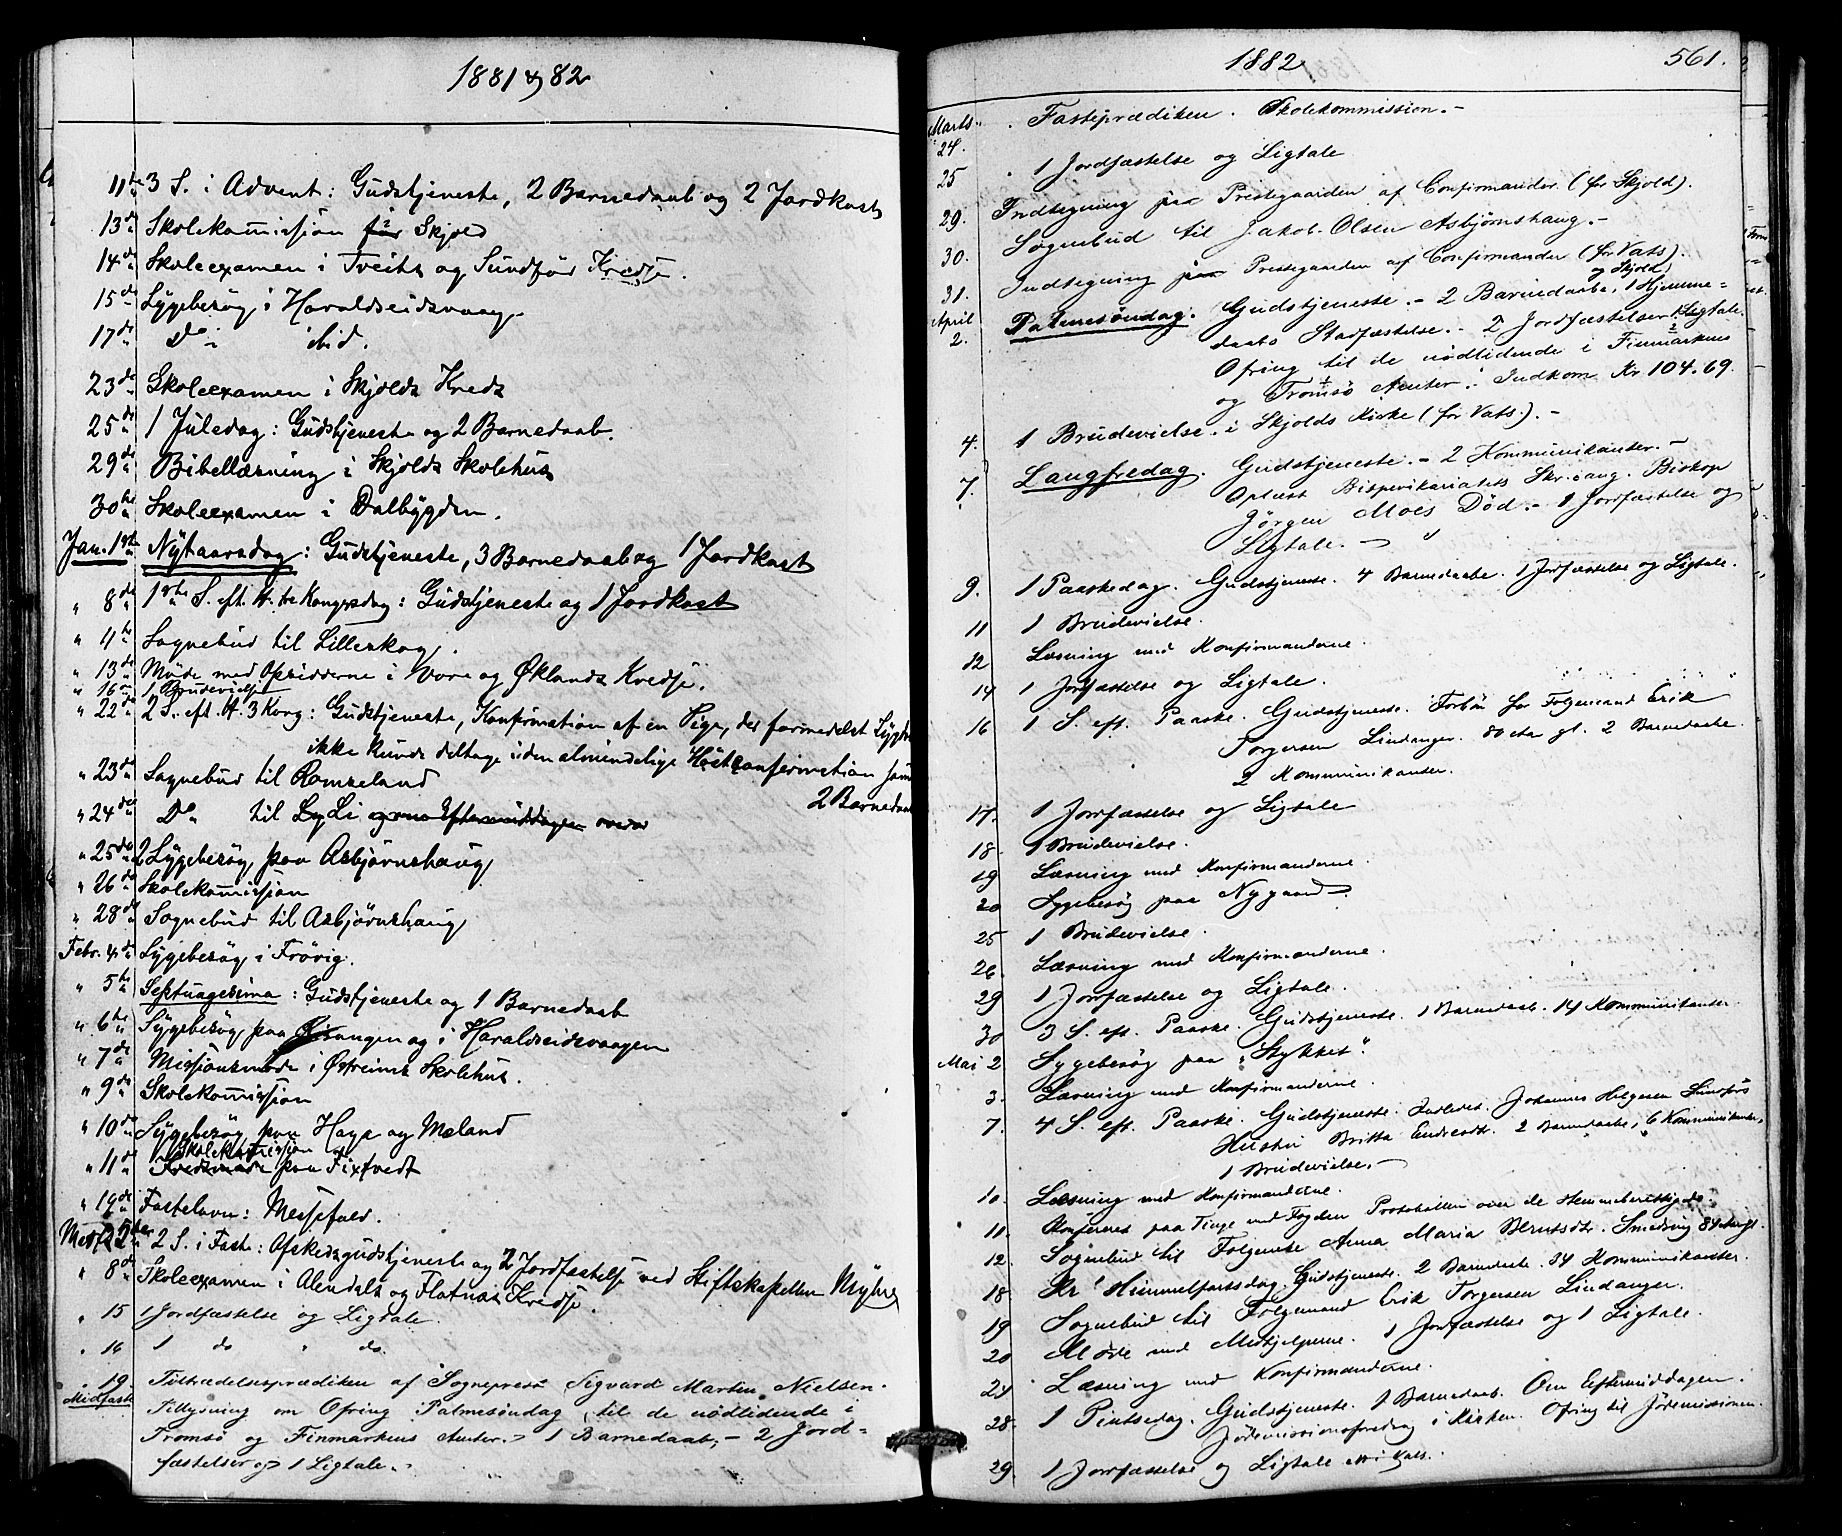 1881 & 82
11te 3 S. i Advent: Gudstjeneste, 2 Barnedaab og 2 Jordkast
13de Skolekommission i Skjold
14de Skoleexamen i Tveits og Sundför Kredse.
15de Sygebesøg i Haraldseidsvaag.
17de Do i ibid.
23de Skoleexamen i Skjolds Kreds
25de 1 Juledag: Gudstjeneste og 2 Barnedaab.
29de Bibellæsning i Skjolds Skolehus
30te Skoleexamen i Dalbygden.
Jan. 1ste Nytaarsdag: Gudstjeneste, 3 Barnedaab og 1 Jordkast
" 8de 1ste S. eft. H. tre Kongersdag: Gudstjeneste og 1 Jordkast
" 11te Sognebud til Lilleskog.
" 13de Møde med Opsidderne i Vore og Øklands Kredse.
" 16 1 Brudevielse
" 22de 2 S. eft. H. 3 Kong: Gudstjeneste, Konfirmation af en Pige, der formedelst Sygdom
ikke kunde deltage i den almindelige Høstconfirmation samt
2 Barnedaab
" 23de Sognebud til Ramseland
" 24de Do til Li
" 25de 2 Sygebesøg paa Asbjørnshaug
" 26de Skolekommission
" 28de Sognebud til Asbjørnshaug
Febr. 4de Sygebesøg i Frövig.
" 5te Septuagesima: Gudstjeneste og 1 Barnedaab
" 6te Sygebesøg paa og i Haraldseidsvaagen
" 7de Missionsmøde i Østreims Skolehus.
" 9de Skolekommission
" 10de Sygebesøg paa Haga og Mæland
" 11te Skolekommission paa Fixtvedt
" 19de Fastelavn: Messefald.
Marts 5te 2 S. i Faste: Afskedsgudstjeneste og 2 Jordfæstelse ved Stiftskapellan Myhre
" 8de Skoleexamen i Alendals og Flatnæs Kredse.
" 15 1 Jordfæstelse og Ligtale.
" 16 1 do " do
" 19. Tiltrædelsesprædiken af Sognepræst Sigvard Martin Nielsen.
Midfaste Tillysning om Ofring Palmesöndag til de nödtidende i
Tromsö og Finmarkens Amter. - 1 Barnedaab, - 2 Jord=
fæstelser og 1 Ligtale.
1882
561.
Marts 24. Fasteprædiken. Skolekommission. -
25 1 Jordfæstelse og Ligtale
29. Indtegning paa Prestegaarden af Confirmander (for Skjold).
30. Sognebud til Jakob Olsen Asbjørnshaug. -
31. Indtegning paa Prestegaarden af Confirmander (for Vats).
og Skjold
April 2. Palmesöndag. Gudstjeneste. - 2 Barnedaabe, 1 Hjemme=
daabs Stadfæstelse. - 2 Jordfæstelser 1 Ligtale.
Ofring til de nödtidende i Finmarkens
og Tromsö Amter. Indkom Kr 104.69.
4. 1 Brudevielse i Skjolds Kirke (for Vats). -
7. Langfredag. Gudstjeneste. - 2 Kommunikanter. -
Oplæst Bispevikariatets Skr. ang. Biskop
Jörgen Moes Död. - 1 Jordfæstelse og
Ligtale. -
9. 1 Paaskedag. Gudstjeneste. 4 Barnedaabe. 1 Jordfæstelse og Ligtale.
11 1 Brudevielse.
12 Læsning med Konfirmanderne.
14 1 Jordfæstelse og Ligtale.
16 1 S. eft. Paaske. Gudstjeneste. Forbön for Folgemand Erik
Torgersen Lindanger. 2 Barnedaabe.
2 Kommunikanter.
17. 1 Jordfæstelse og Ligtale
18. 1 Brudevielse.
19 Læsning med Konfirmanderne.
20 Sygebesøg paa Nygaard
25 1 Brudevielse.
26. Læsning med Konfirmanderne.
29 1 Jordfæstelse og Ligtale.
30 3 S. eft. Paaske. Gudstjeneste. 1 Barnedaab. 14 Kommunikanter
Mai 2 Sygebesøg paa "Stykket".
3. Læsning med Konfirmanderne.
7. 4 S. eft. Paaske. Gudstjeneste. Johannes Helgesen Sundförs
Hustru Britta Endresdtr. 2 Barnedaabe, 6 Kommunikanter,
1 Brudevielse. -
10. Læsning med Konfirmanderne.
11. Konfereret paa Tinge med Fogden Protokollen over de Stemmeberettigede.
12. Sognebud til Folgemand Anna Maria Berntsdtr. Smedsvig 84 Aar gl.
18. Kr. Himmelfartsdag. Gudstjeneste. 2 Barnedaabe. 34 Kommunikanter.
19 Sognebud til Folgemand Erik Torgersen Lindanger.
20 Möde med Medhjelperne. 1 Jordfæstelse og 1 Ligtale.
24 Læsning med Konfirmanderne.
28. 1 Pintsedag. Gudstjeneste. 1 Barnedaab. Om Eftermiddagen
Jödemissionsforedrag i Kirken. Ofring til Jödemissionen.
29. 1 Jordfæstelse og Ligtale i Vats.